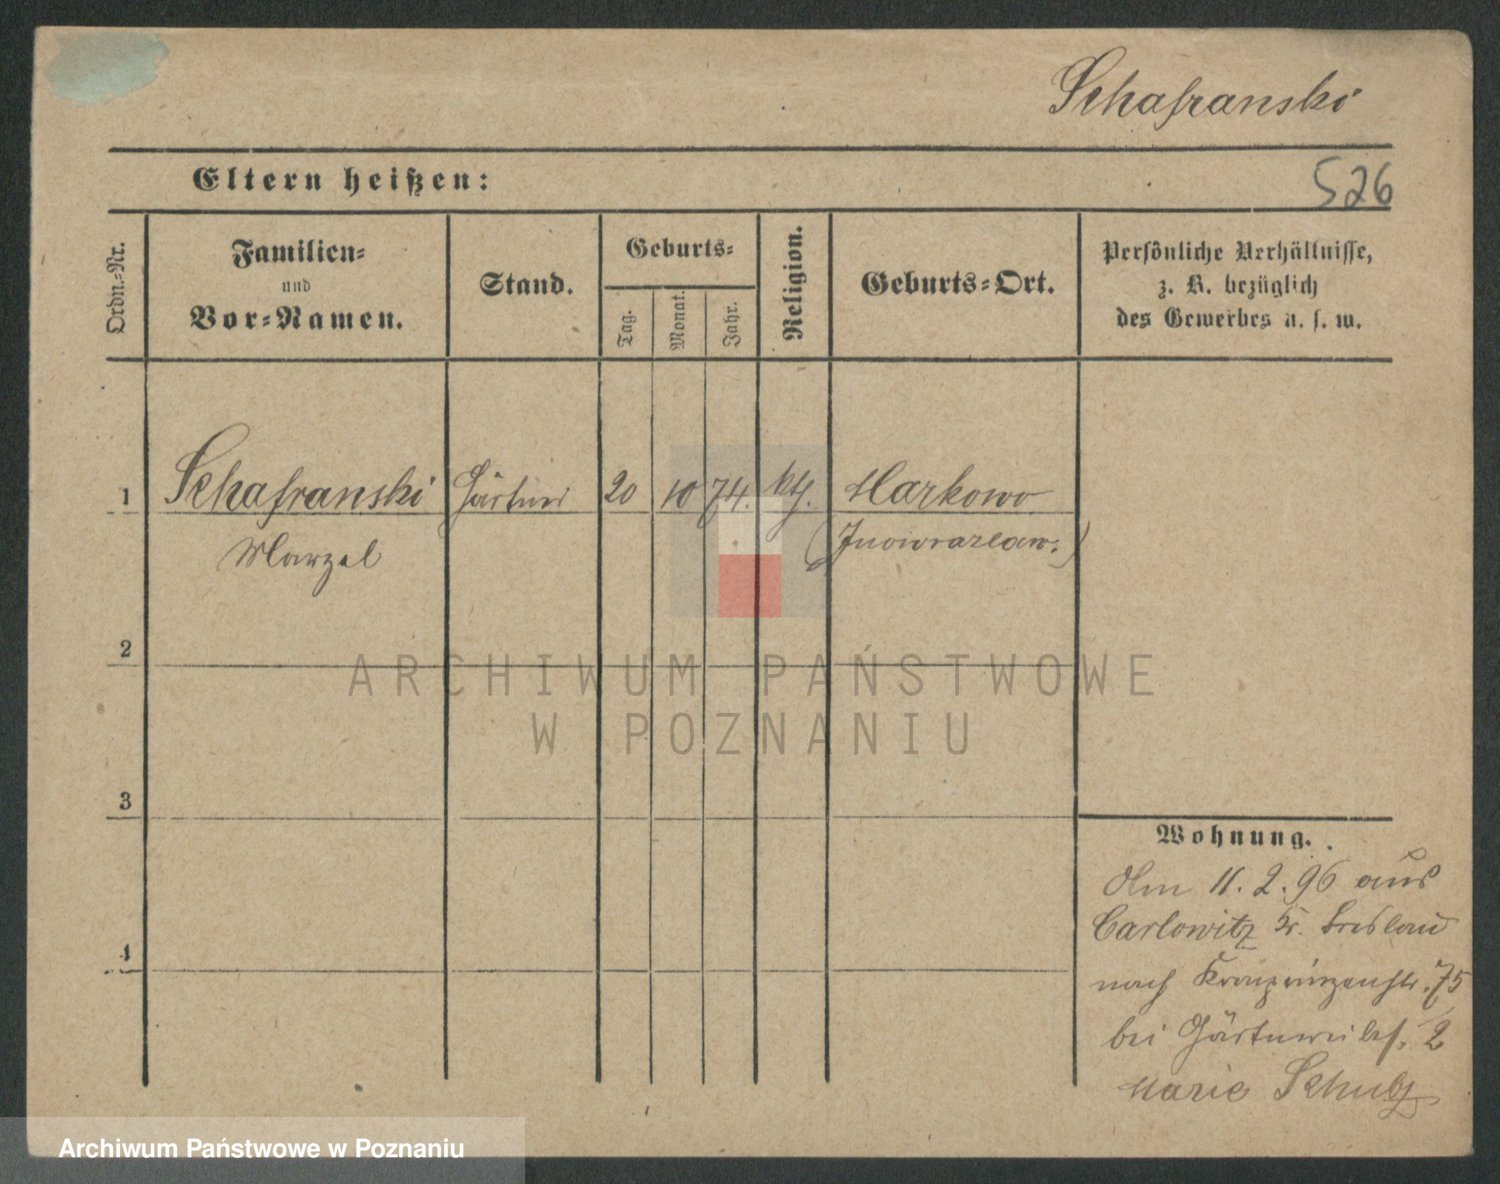 Schafranski
Eltern heißen:
526
Ordn.=Nr.
Familien=
und
Vor=Namen.
Stand.
Geburts=
Tag.
Monat.
Jahr.
Religion.
Geburts=Ort.
Persönliche Verhältnisse,
z. B. bezüglich
des Gewerbes u. s. w.
1 Schafranski Gärtner 20 10 74. kth. Markowo
Marzel (Inowrazlaw.)
2
ARCHIWUM PAŃSTWOWE
W POZNANIU
3
Wohnung.
4
Am 11. 2. 96 aus
Carlowitz Kr. Breslau
nach Kronprinzenstr. 75
bei Gärtnereibes.
Marie Schulz
Archiwum Państwowe w Poznaniu